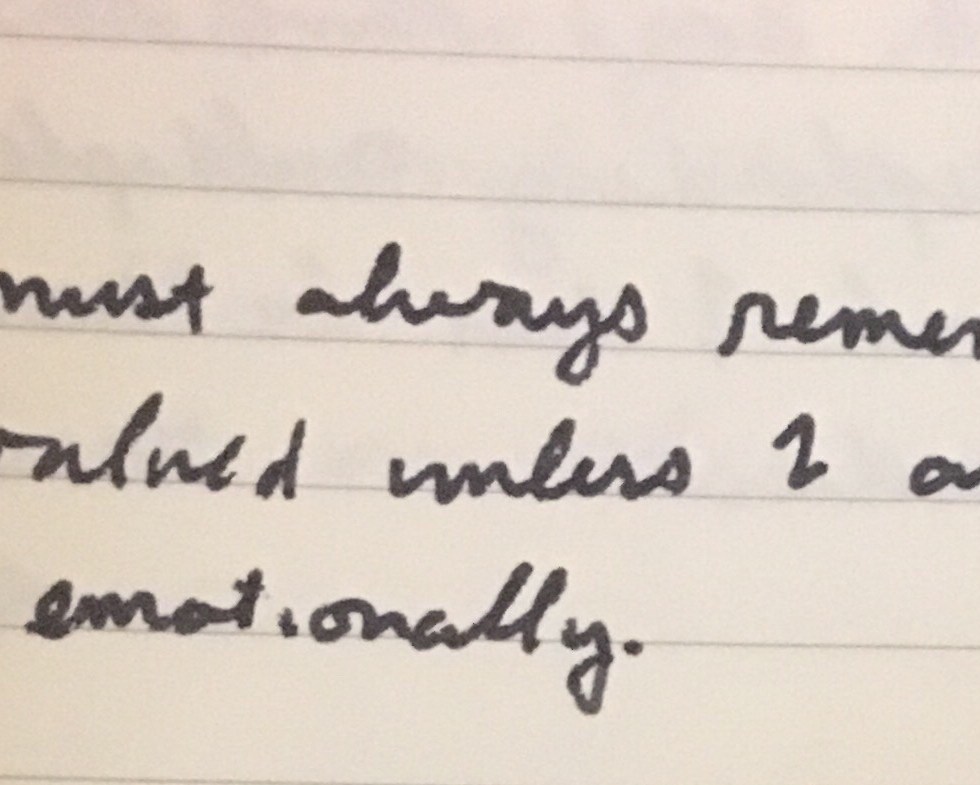 must always remem
valued unless I a
emotionally.